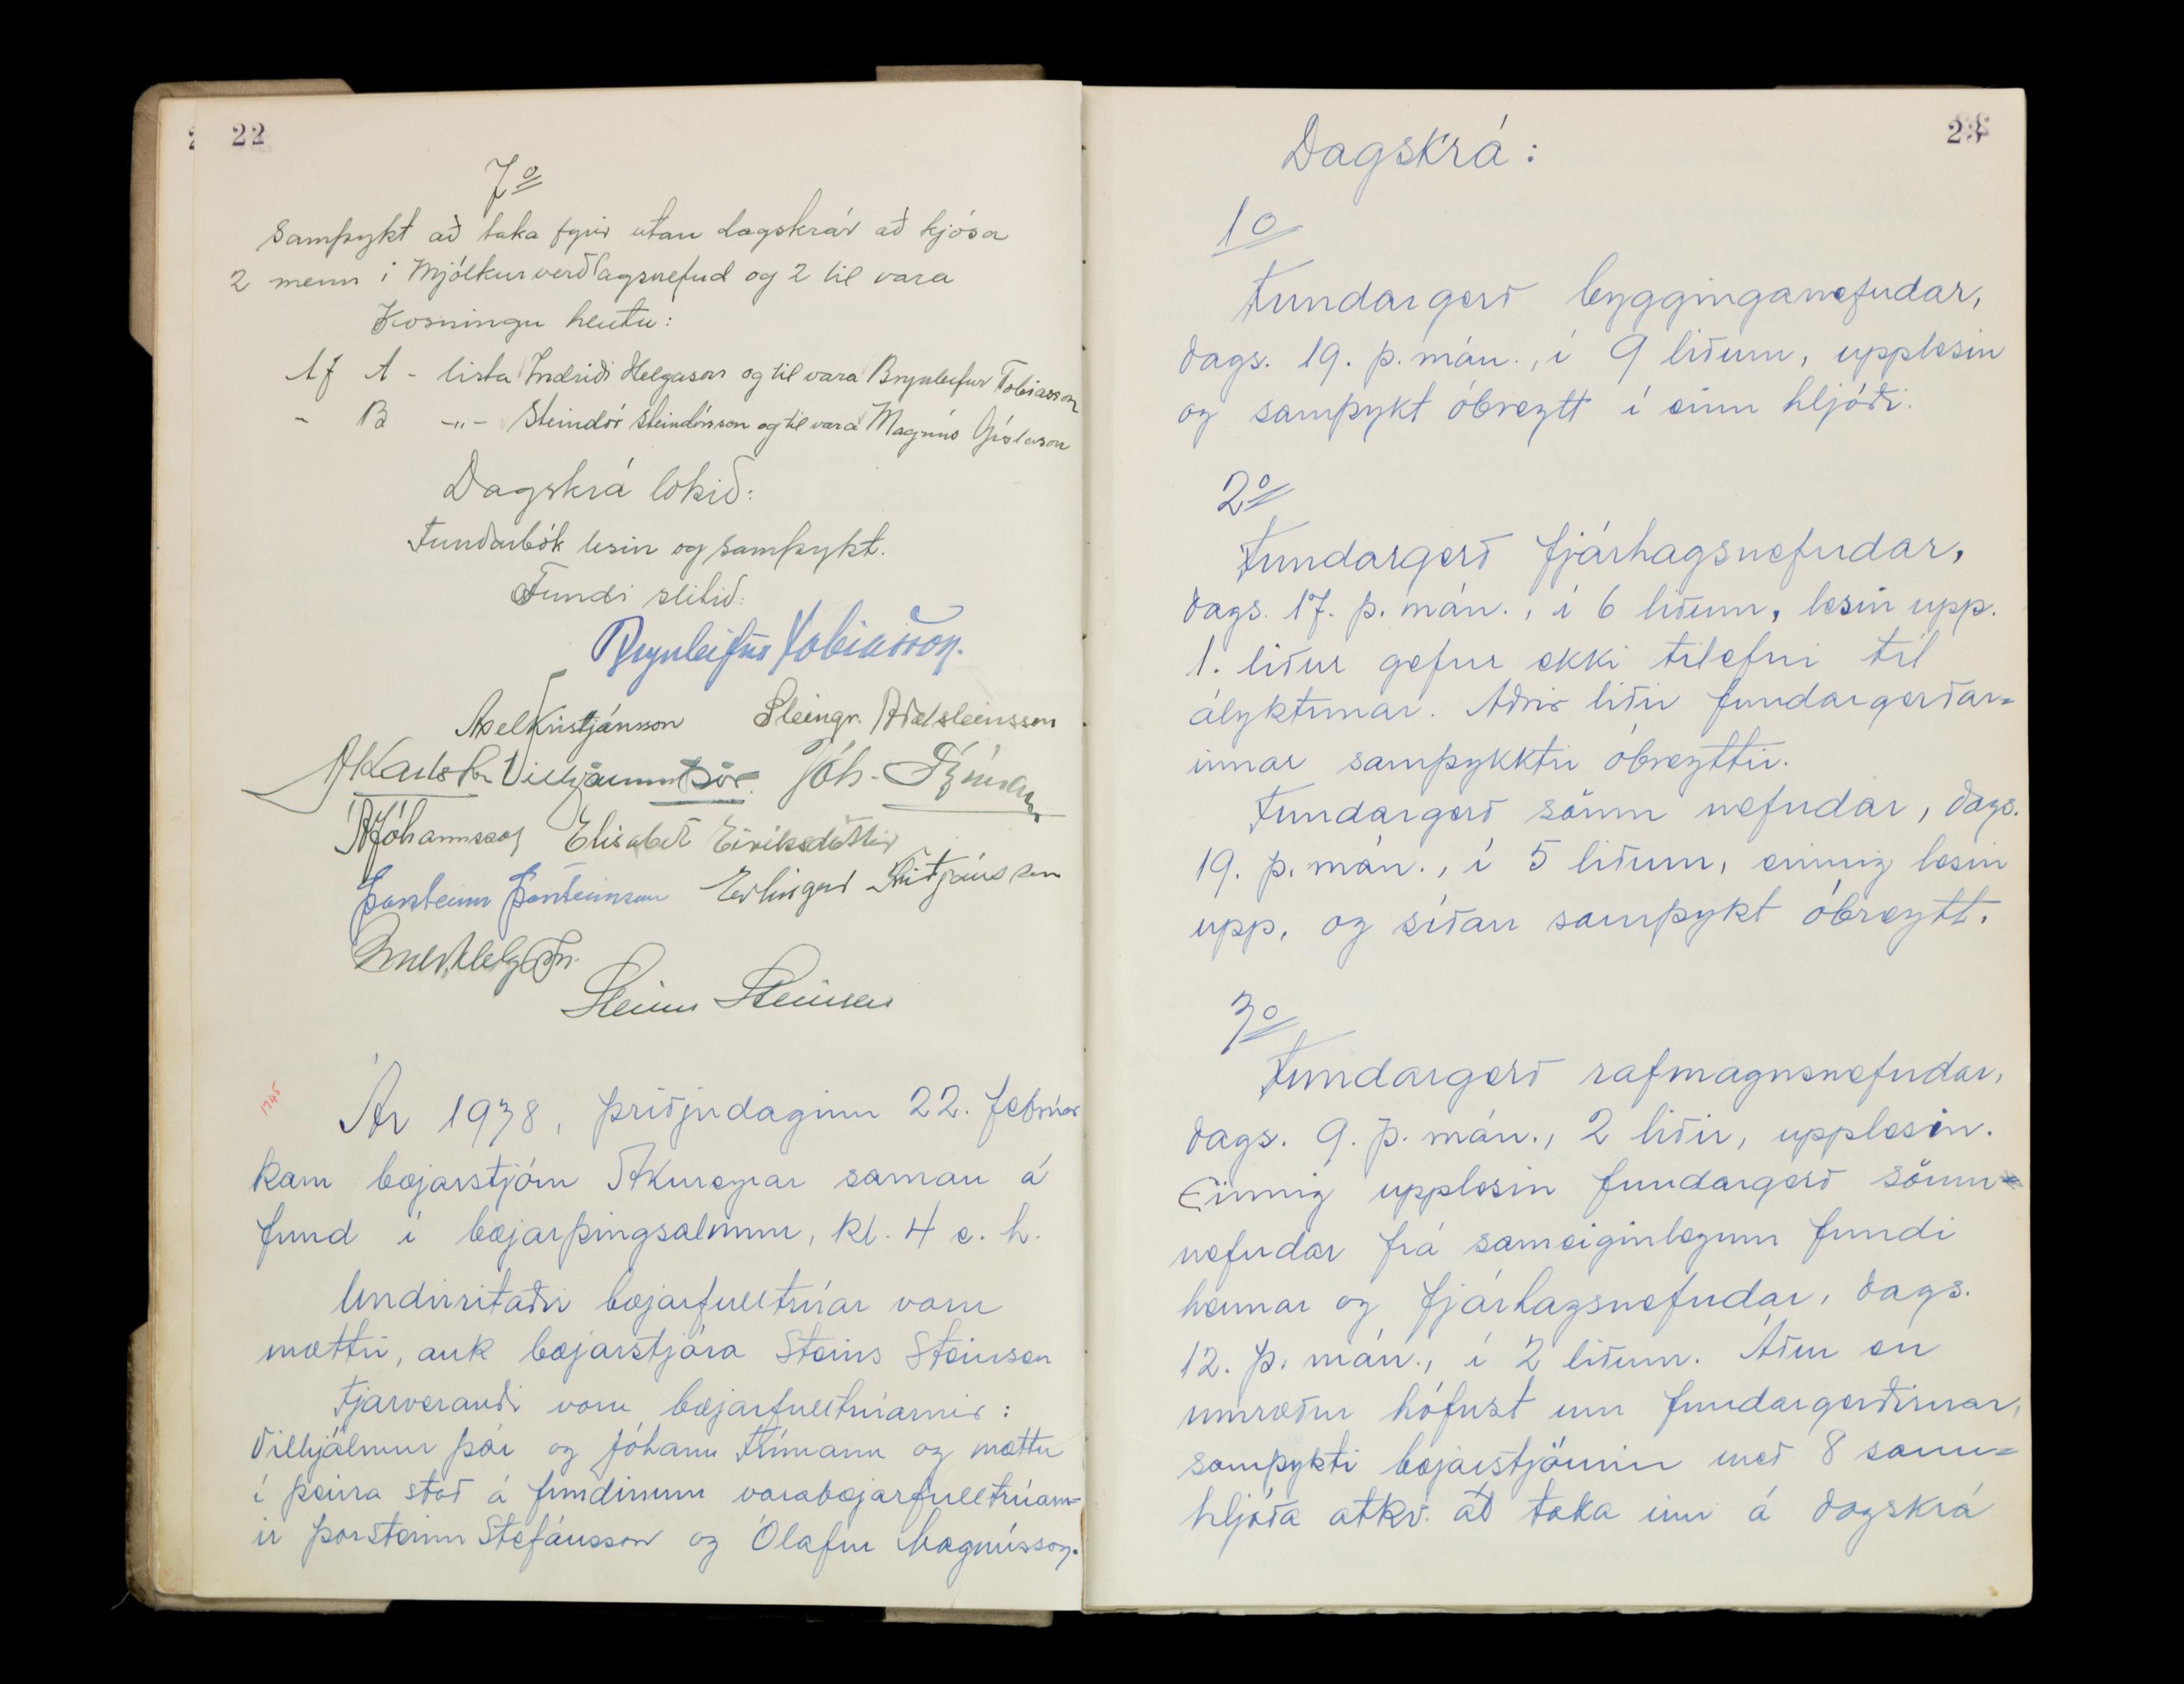 22
7o
Samþykt að taka fyrir utan dagskrár að kjósa
2 menn í Mjólkurverðlagsnefnd og 2 til vara
Kosningu hlutu:
Af A - lista Indriði Helgason og til vara Brynleifur Tobiasson
- B -"- Steindór Steindórsson og til vara Magnús Gíslason
Dagskrá lokið:
Fundarbók lesin og samþykt.
Fundi slitið:
Brynleifur Tobiasson.
Axel Kristjánsson Steingr. Aðalsteinsson
Vilhjálmur Þór. Jóh. Frímann
Jóhannsson Elisabet Eiriksdóttir
Þorsteinn Þorsteinsson Erlingur Friðjónsson
Indr. Helgason
Steinn Steinsen
1745
Ár 1938, þriðjudaginn 22. febrúar
kom bæjarstjórn Akureyrar saman á
fund í bæjarþingsalnum, kl. 4 e. h.
Undirritaðir bæjarfulltrúar voru
mættir, auk bæjarstjóra Steins Steinsen
Fjarverandi voru bæjarfulltrúarnir:
Vilhjálmur Þór og Jóhann Frímann og mættu
í þeirra stað á fundinum varabæjarfulltrúarn-
ir Þorsteinn Stefánsson og Ólafur Magnússon.
23
Dagskrá:
1o
Fundargerð bygginganefndar,
dags. 19. þ. mán., í 9 liðum, upplesin
og samþykt óbreytt í einu hljóði.
2o
Fundargerð fjárhagsnefndar,
dags. 17. þ. mán., í 6 liðum, lesin upp.
1. liður gefur ekki tilefni til
ályktunar. Aðrir liðir fundargerðar=
innar samþykktir óbreyttir.
Fundargerð sömu nefndar, dags.
19. þ. mán., í 5 liðum, einnig lesin
upp, og síðan samþykt óbreytt.
3o
Fundargerð rafmagnsnefndar,
dags. 9. þ. mán., 2 liðir, upplesin.
Einnig upplesin fundargerð sömu
nefndar frá sameiginlegum fundi
hennar og fjárhagsnefndar, dags.
12. þ. mán., í 2 liðum. Áður en
umræður hófust um fundargerðirnar,
samþykti bæjarstjórnin með 8 sam=
hljóða atkv. að taka inn á dagskrá